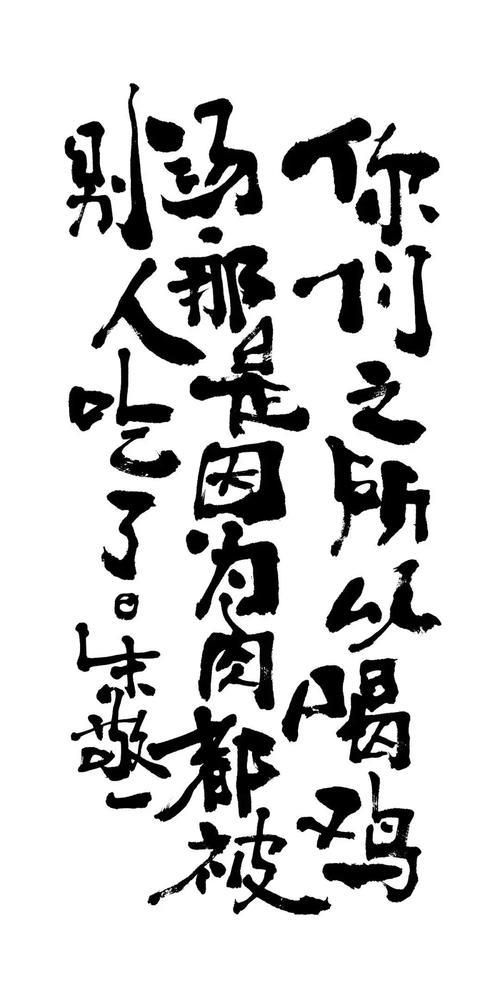 你们之所以喝鸡
汤，那是因为肉都被
别人吃了。朱敬一